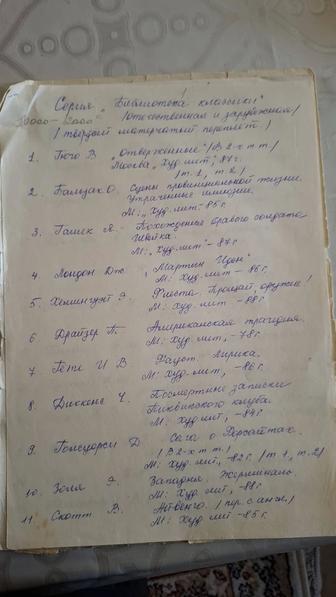 Серия „Библиотека классики"
10000-12000
/отечественная и зарубежная/
/твердый матерчатый переплет/
1. Гюго В „Отверженные" /В 2-х т.т/
Москва „Худ. лит", 87г.
/т. 1, т. 2/
2. Бальзак О. Сцены провинциальной жизни.
Утраченные иллюзии.
М: „Худ. лит" - 85 г.
3. Гашек Я. - Похождения бравого солдата
Швейка.
М: „Худ. лит" - 87г
4. Лондон Дж. „Мартин Иден"
М: Худ. лит - 86г.
5. Хемингуэй Э. Фиеста. Прощай, оружие!
М: Худ. лит - 88г
6 Драйзер Т. Американская трагедия.
М: Худ. лит, - 78г.
7 Гете И В Фауст. Лирика.
М: Худ. лит, - 86г.
8. Диккенс Ч. Посмертные записки
Пиквикского клуба.
М: Худ. лит, - 84г
9. Голсуорси Д. Сага о Форсайтах.
/В 2-х т.т./
М: Худ лит, - 82г. /т 1, т. 2/
10. Золя Э. Западня. Жерминаль.
М: Худ лит, - 88г
11. Скотт В. Айвенго. /пер. с англ./
М: Худ лит - 85 г.